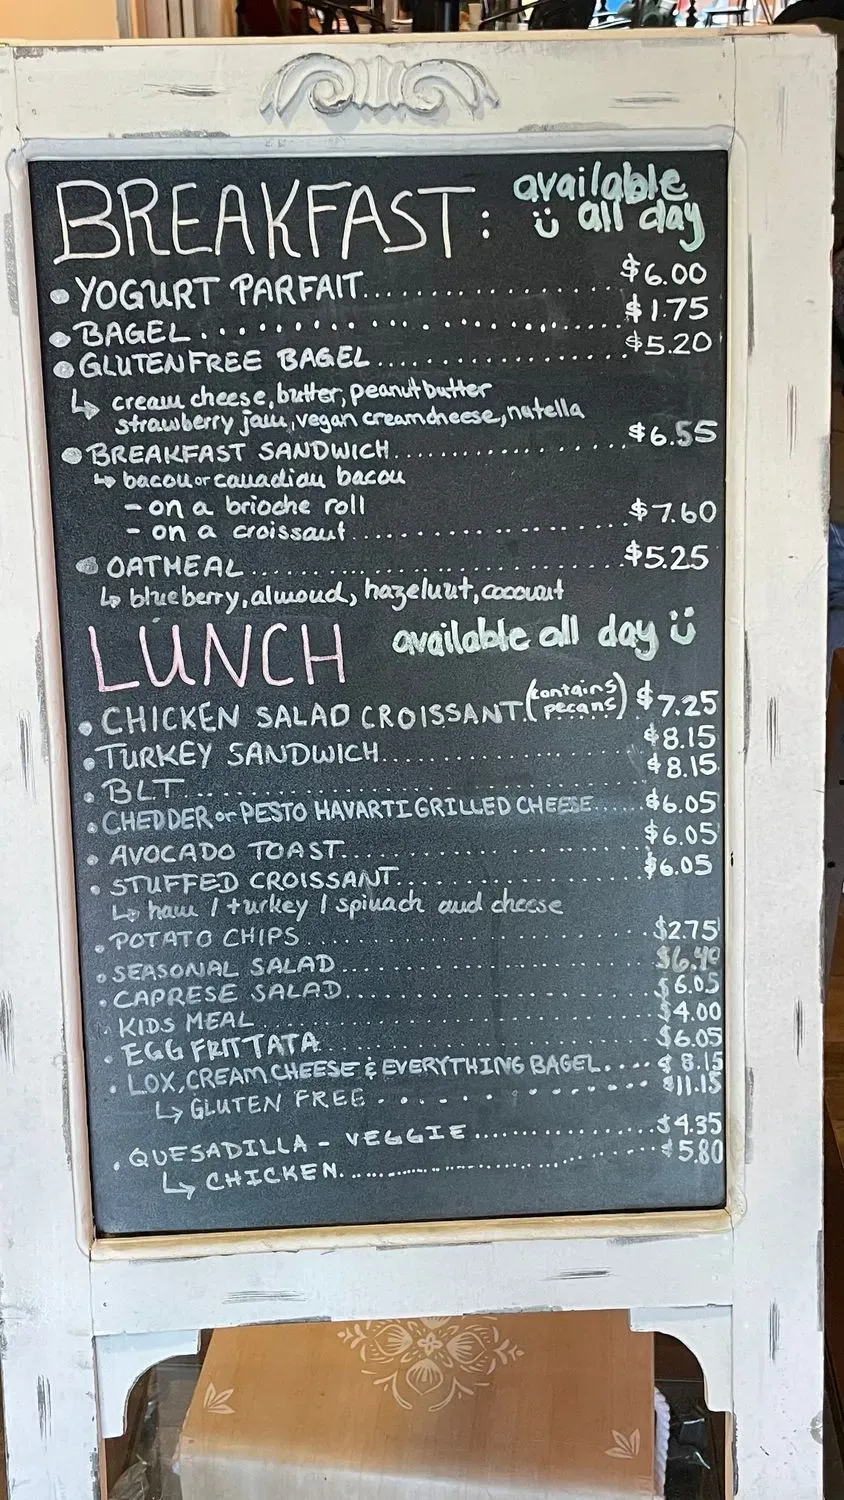 BREAKFAST: available
ü all day
• YOGURT PARFAIT.................... $6.00
• BAGEL.................... $1.75
• GLUTENFREE BAGEL.................... $5.20
↳ cream cheese, butter, peanut butter
strawberry jam, vegan creamcheese, nutella
• BREAKFAST SANDWICH.................... $6.55
↳ bacon or canadian bacon
- on a brioche roll
- on a croissant.................... $7.60
• OATMEAL.................... $5.25
↳ blueberry, almond, hazelnut, coconut
LUNCH available all day ü
• CHICKEN SALAD CROISSANT. (contains pecans) $7.25
• TURKEY SANDWICH.................... $8.15
• BLT.................... $8.15
• CHEDDER or PESTO HAVARTI GRILLED CHEESE...... $6.05
• AVOCADO TOAST.................... $6.05
• STUFFED CROISSANT.................... $6.05
↳ ham / turkey / spinach and cheese
• POTATO CHIPS.................... $2.75
• SEASONAL SALAD.................... $6.40
• CAPRESE SALAD.................... $6.05
• KIDS MEAL.................... $4.00
• EGG FRITTATA.................... $6.05
• LOX, CREAM CHEESE & EVERYTHING BAGEL.... $8.15
↳ GLUTEN FREE.................... $11.15
• QUESADILLA - VEGGIE.................... $4.35
↳ CHICKEN.................... $5.80